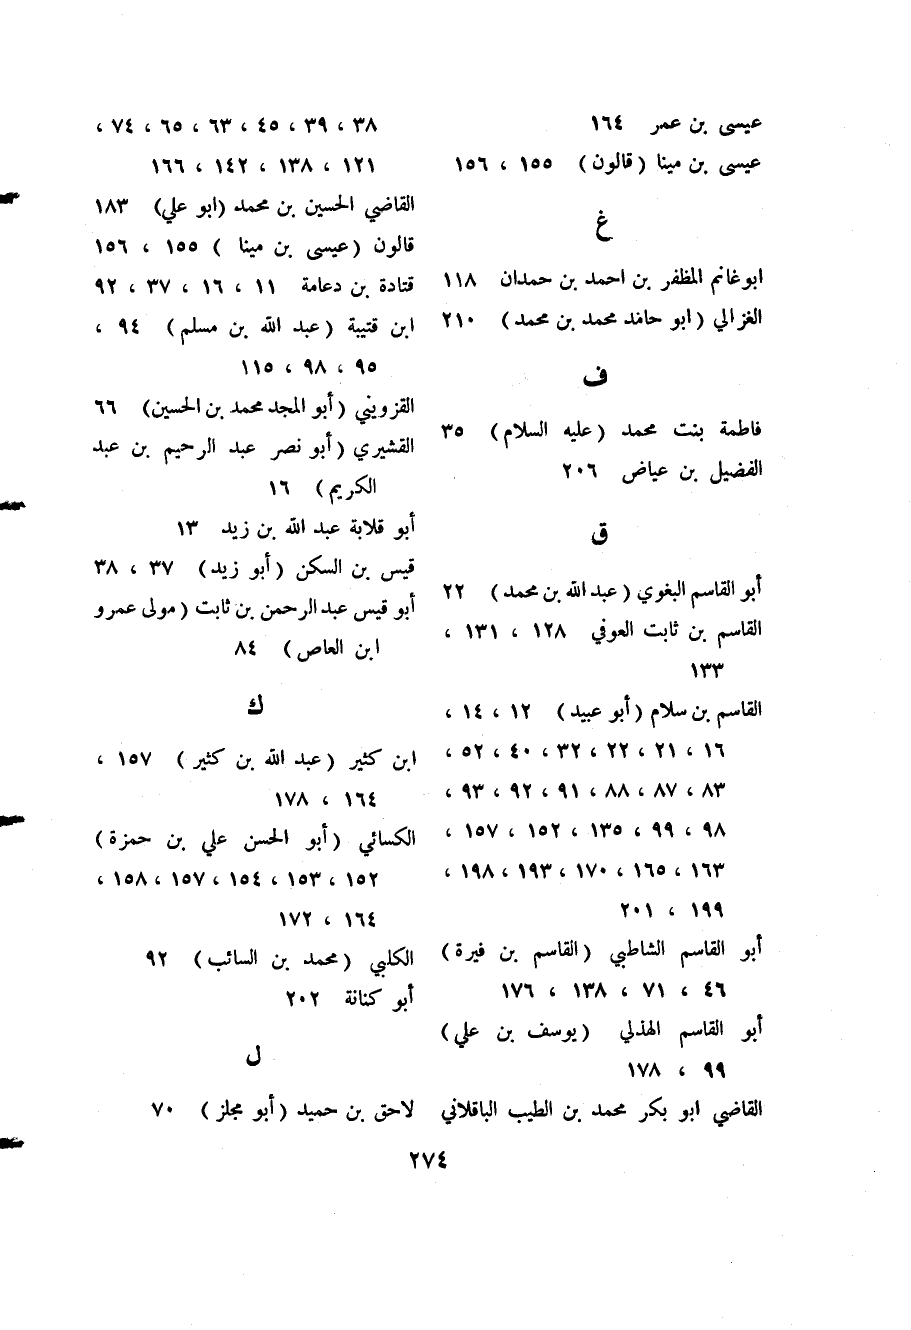 عيسى بن عمر ١٦٤
عيسى بن مينا (قالون) ١٥٥ ، ١٥٦
غ
ابوغانم المظفر بن احمد بن حمدان ١١٨
الغزالي (ابو حامد محمد بن محمد) ٢١٠
ف
فاطمة بنت محمد (عليه السلام) ٣٥
الفضيل بن عياض ٢٠٦
ق
أبو القاسم البغوي (عبد الله بن محمد) ٢٢
القاسم بن ثابت العوفي ١٢٨ ، ١٣١ ،
١٣٣
القاسم بن سلام (أبو عبيد) ١٢ ، ١٤ ،
١٦ ، ٢١ ، ٢٢ ، ٣٢ ، ٤٠ ، ٥٢ ،
٨٣ ، ٨٧ ، ٨٨ ، ٩١ ، ٩٢ ، ٩٣ ،
٩٨ ، ٩٩ ، ١٣٥ ، ١٥٢ ، ١٥٧ ،
١٦٣ ، ١٦٥ ، ١٧٠ ، ١٩٣ ، ١٩٨ ،
١٩٩ ، ٢٠١
أبو القاسم الشاطبي (القاسم بن فيرة)
٤٦ ، ٧١ ، ١٣٨ ، ١٧٦
أبو القاسم الهذلي (يوسف بن علي)
٩٩ ، ١٧٨
القاضي ابو بكر محمد بن الطيب الباقلاني
٣٨ ، ٣٩ ، ٤٥ ، ٦٣ ، ٦٥ ، ٧٤ ،
١٢١ ، ١٣٨ ، ١٤٢ ، ١٦٦
القاضي الحسين بن محمد (ابو علي) ١٨٣
قالون (عيسى بن مينا ) ١٥٥ ، ١٥٦
قتادة بن دعامة ١١ ، ١٦ ، ٣٧ ، ٩٢
ابن قتيبة (عبد الله بن مسلم) ٩٤ ،
٩٥ ، ٩٨ ، ١١٥
القزويني (أبو المجد محمد بن الحسين) ٦٦
القشيري (أبو نصر عبد الرحيم بن عبد
الكريم) ١٦
أبو قلابة عبد الله بن زيد ١٣
قيس بن السكن (أبو زيد) ٣٧ ، ٣٨
أبو قيس عبد الرحمن بن ثابت (مولى عمرو
ابن العاص) ٨٤
ك
ابن كثير (عبد الله بن كثير) ١٥٧ ،
١٦٤ ، ١٧٨
الكسائي (أبو الحسن علي بن حمزة)
١٥٢ ، ١٥٣ ، ١٥٤ ، ١٥٧ ، ١٥٨ ،
١٦٤ ، ١٧٢
الكلبي (محمد بن السائب) ٩٢
أبو كنانة ٢٠٢
ل
لاحق بن حميد (أبو مجلز) ٧٠
٢٧٤